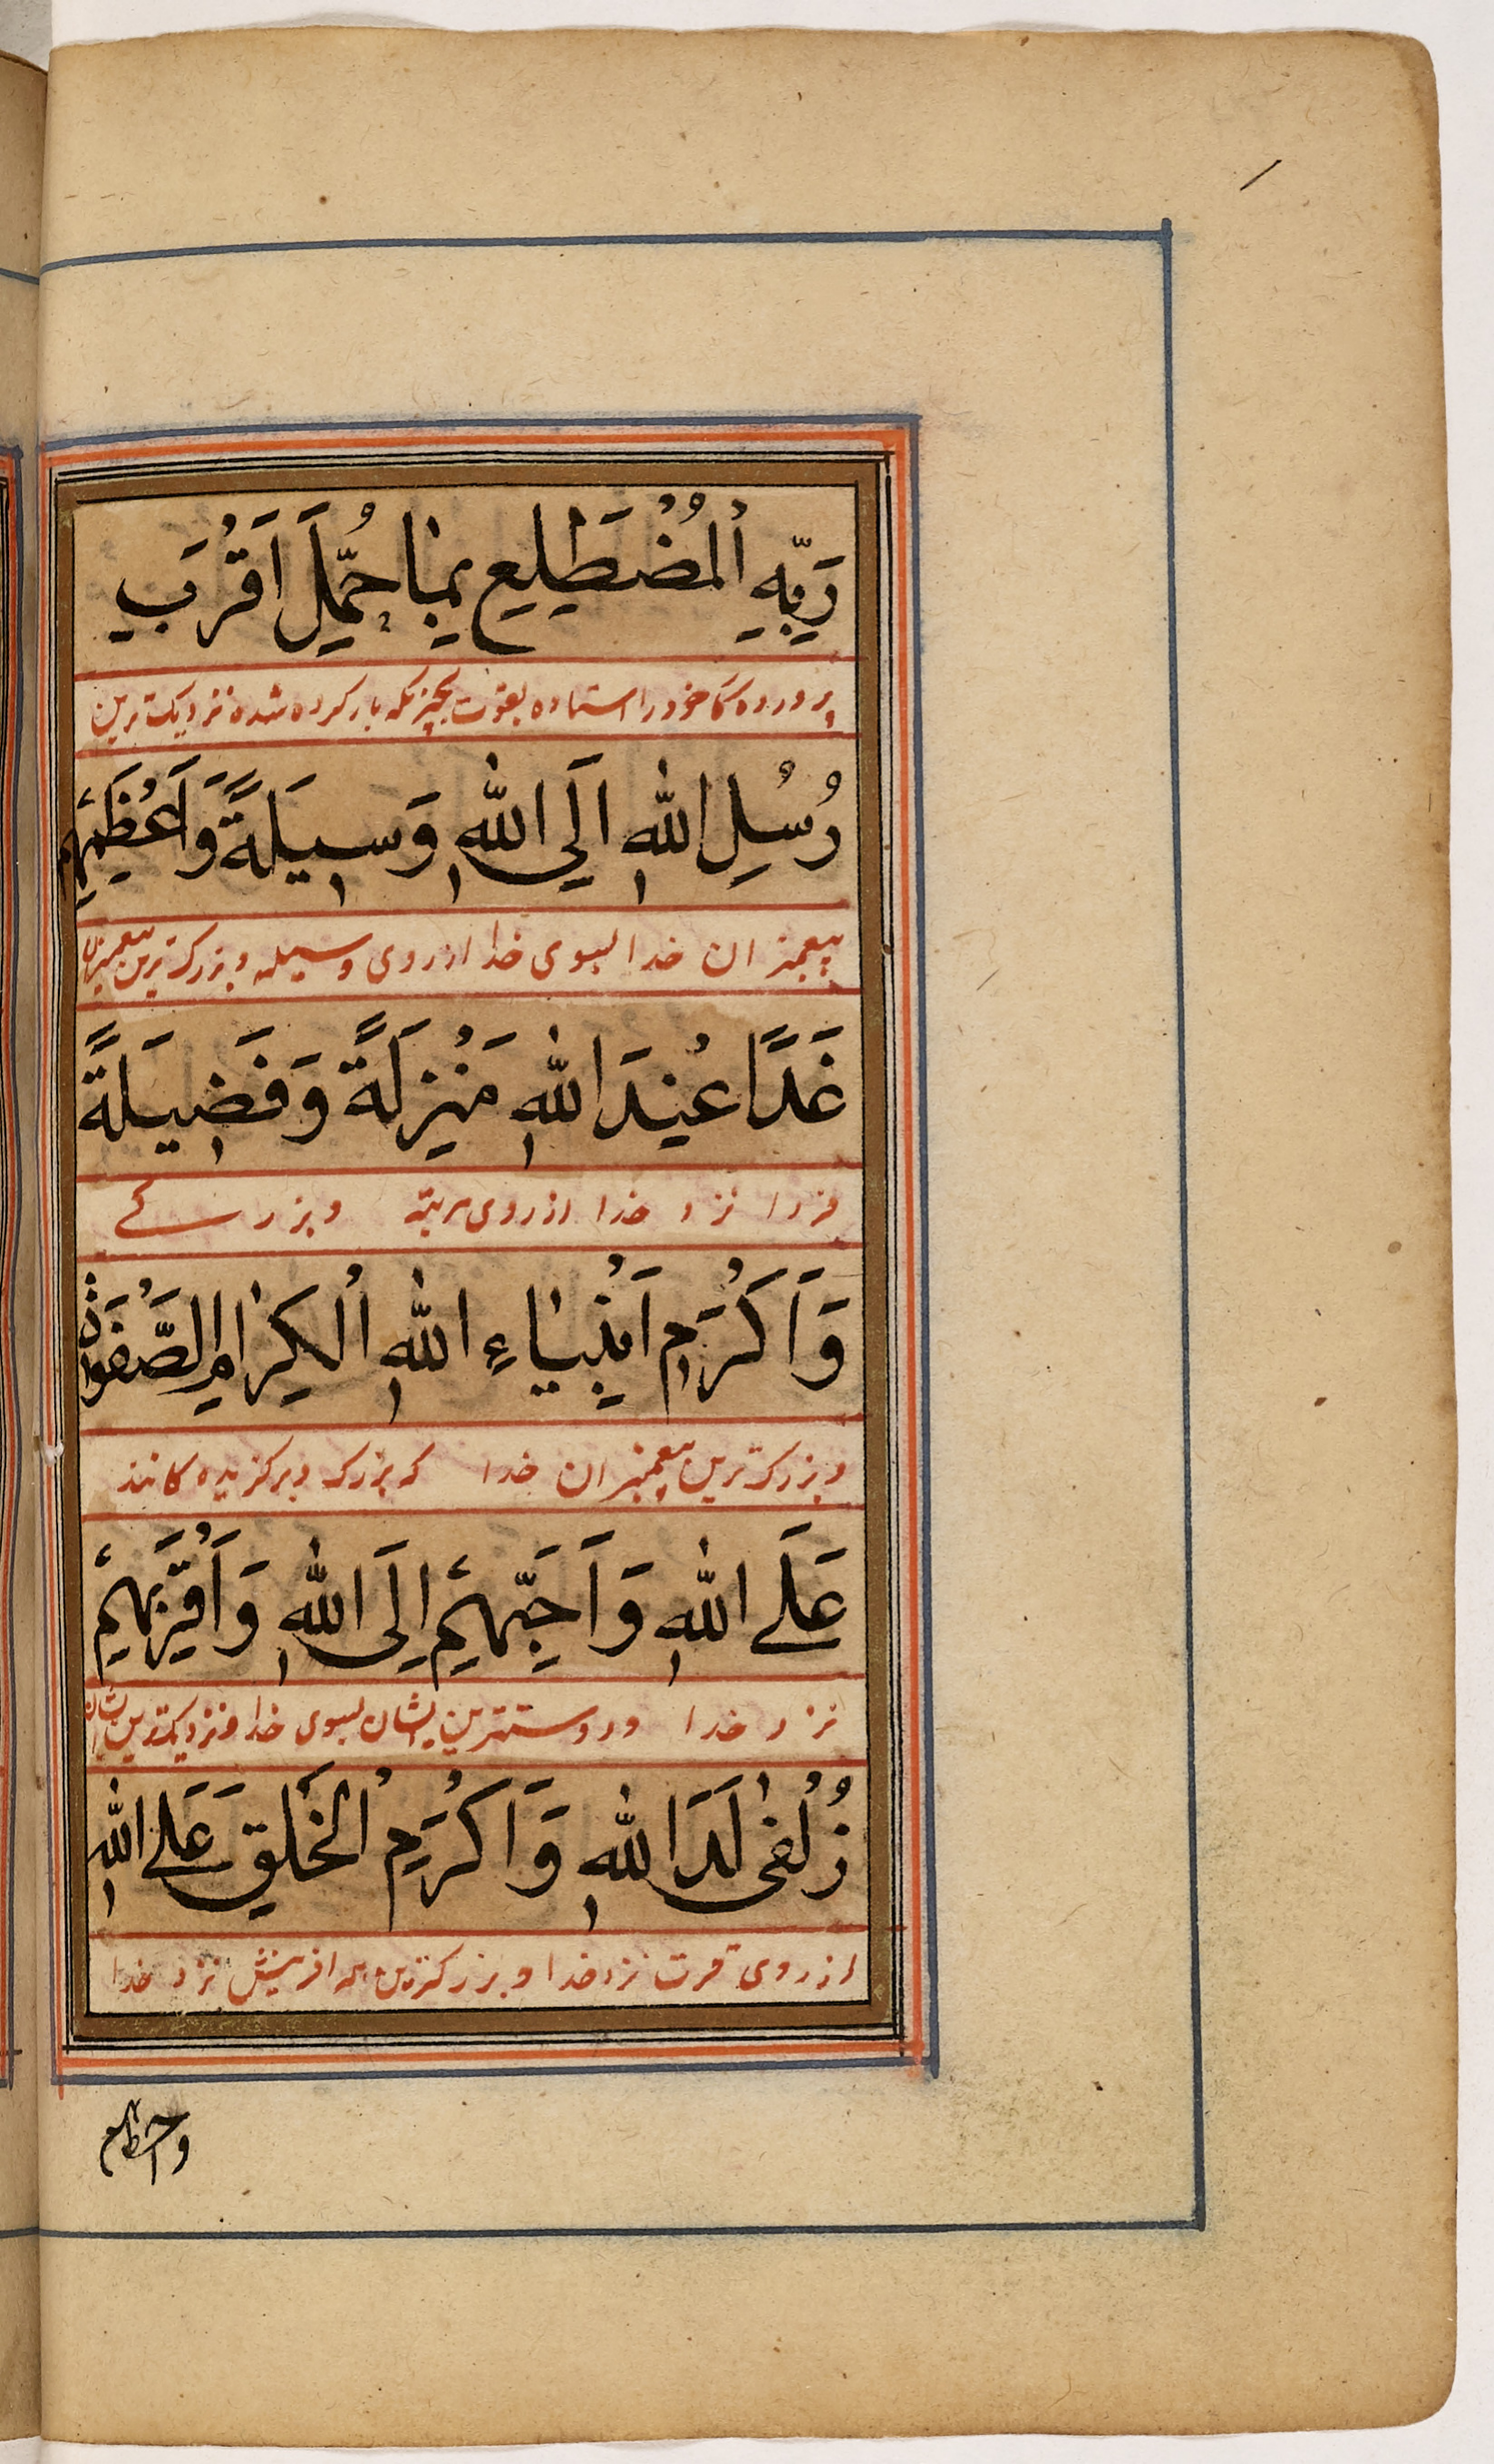 رَبِّهِ الْمُضْطَلِعِ بِمَا حُمِّلَ اَقْرَبِ
پروردکار خود را استاده بقوت بچیزیکه بار کرده شده نزدیکترین
رُسُلِ اللهِ اِلَی اللهِ وَسِیلَةً وَاَعْظَمِهِمْ
پیغمبران خدا بسوی خدا از روی وسیله و بزرکترین پیغمبران
غَدًا عِنْدَ اللهِ مَنْزِلَةً وَفَضِیلَةً
فردا نزد خدا از روی مرتبه و بزرکے
وَاَکْرَمِ اَنْبِیَاءِ اللهِ الْکِرَامِ الصَّفْوَةِ
و بزرکترین پیغمبران خدا که بزرک و برکزیده کانند
عَلَے اللهِ وَاَحَبِّهِمْ اِلَی اللهِ وَاَقْرَبِهِمْ
نزد خدا و دوستترین ایشان بسوی خدا و نزدیکترین ایشان
زُلْفٰی لَدَا اللهِ وَاَکْرَمِ الْخَلْقِ عَلَے اللهِ
از روی قربت نزد خدا و بزرکترین همه افرینش نزد خدا
واحظاهم